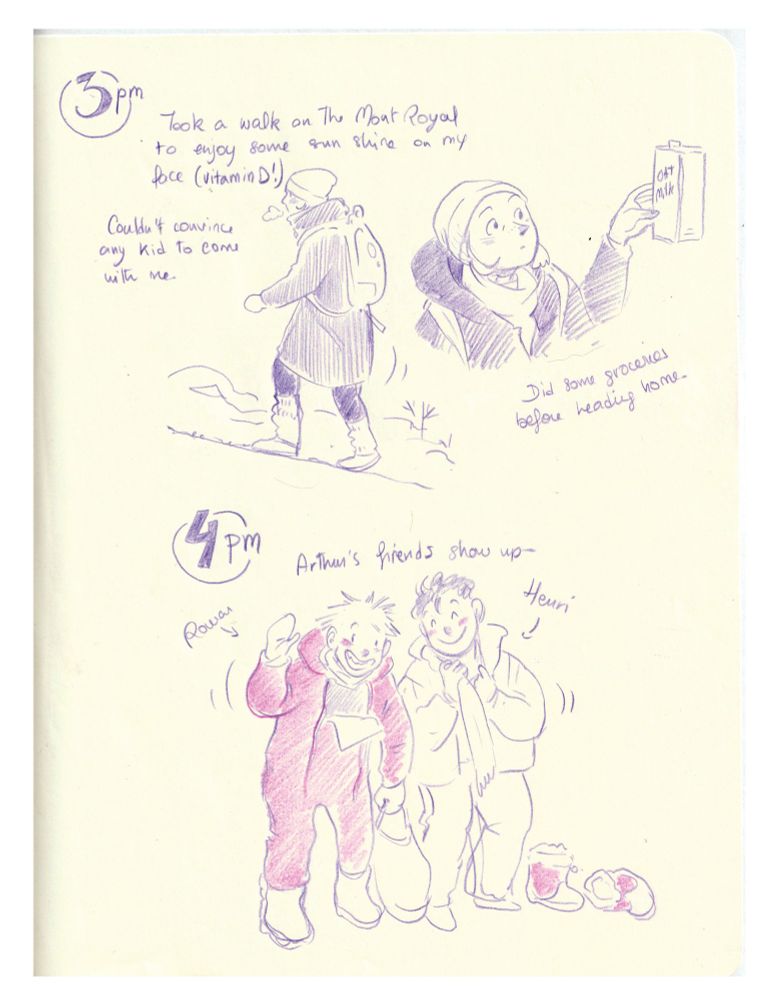 3pm
Took a walk on The Mont Royal
to enjoy some sun shine on my
face (vitamin D!)
Couldn't convince
any kid to come
with me.
OAT
Milk
Did some groceries
before heading home.
4pm
Arthur's friends show up-
Rowan
Henri